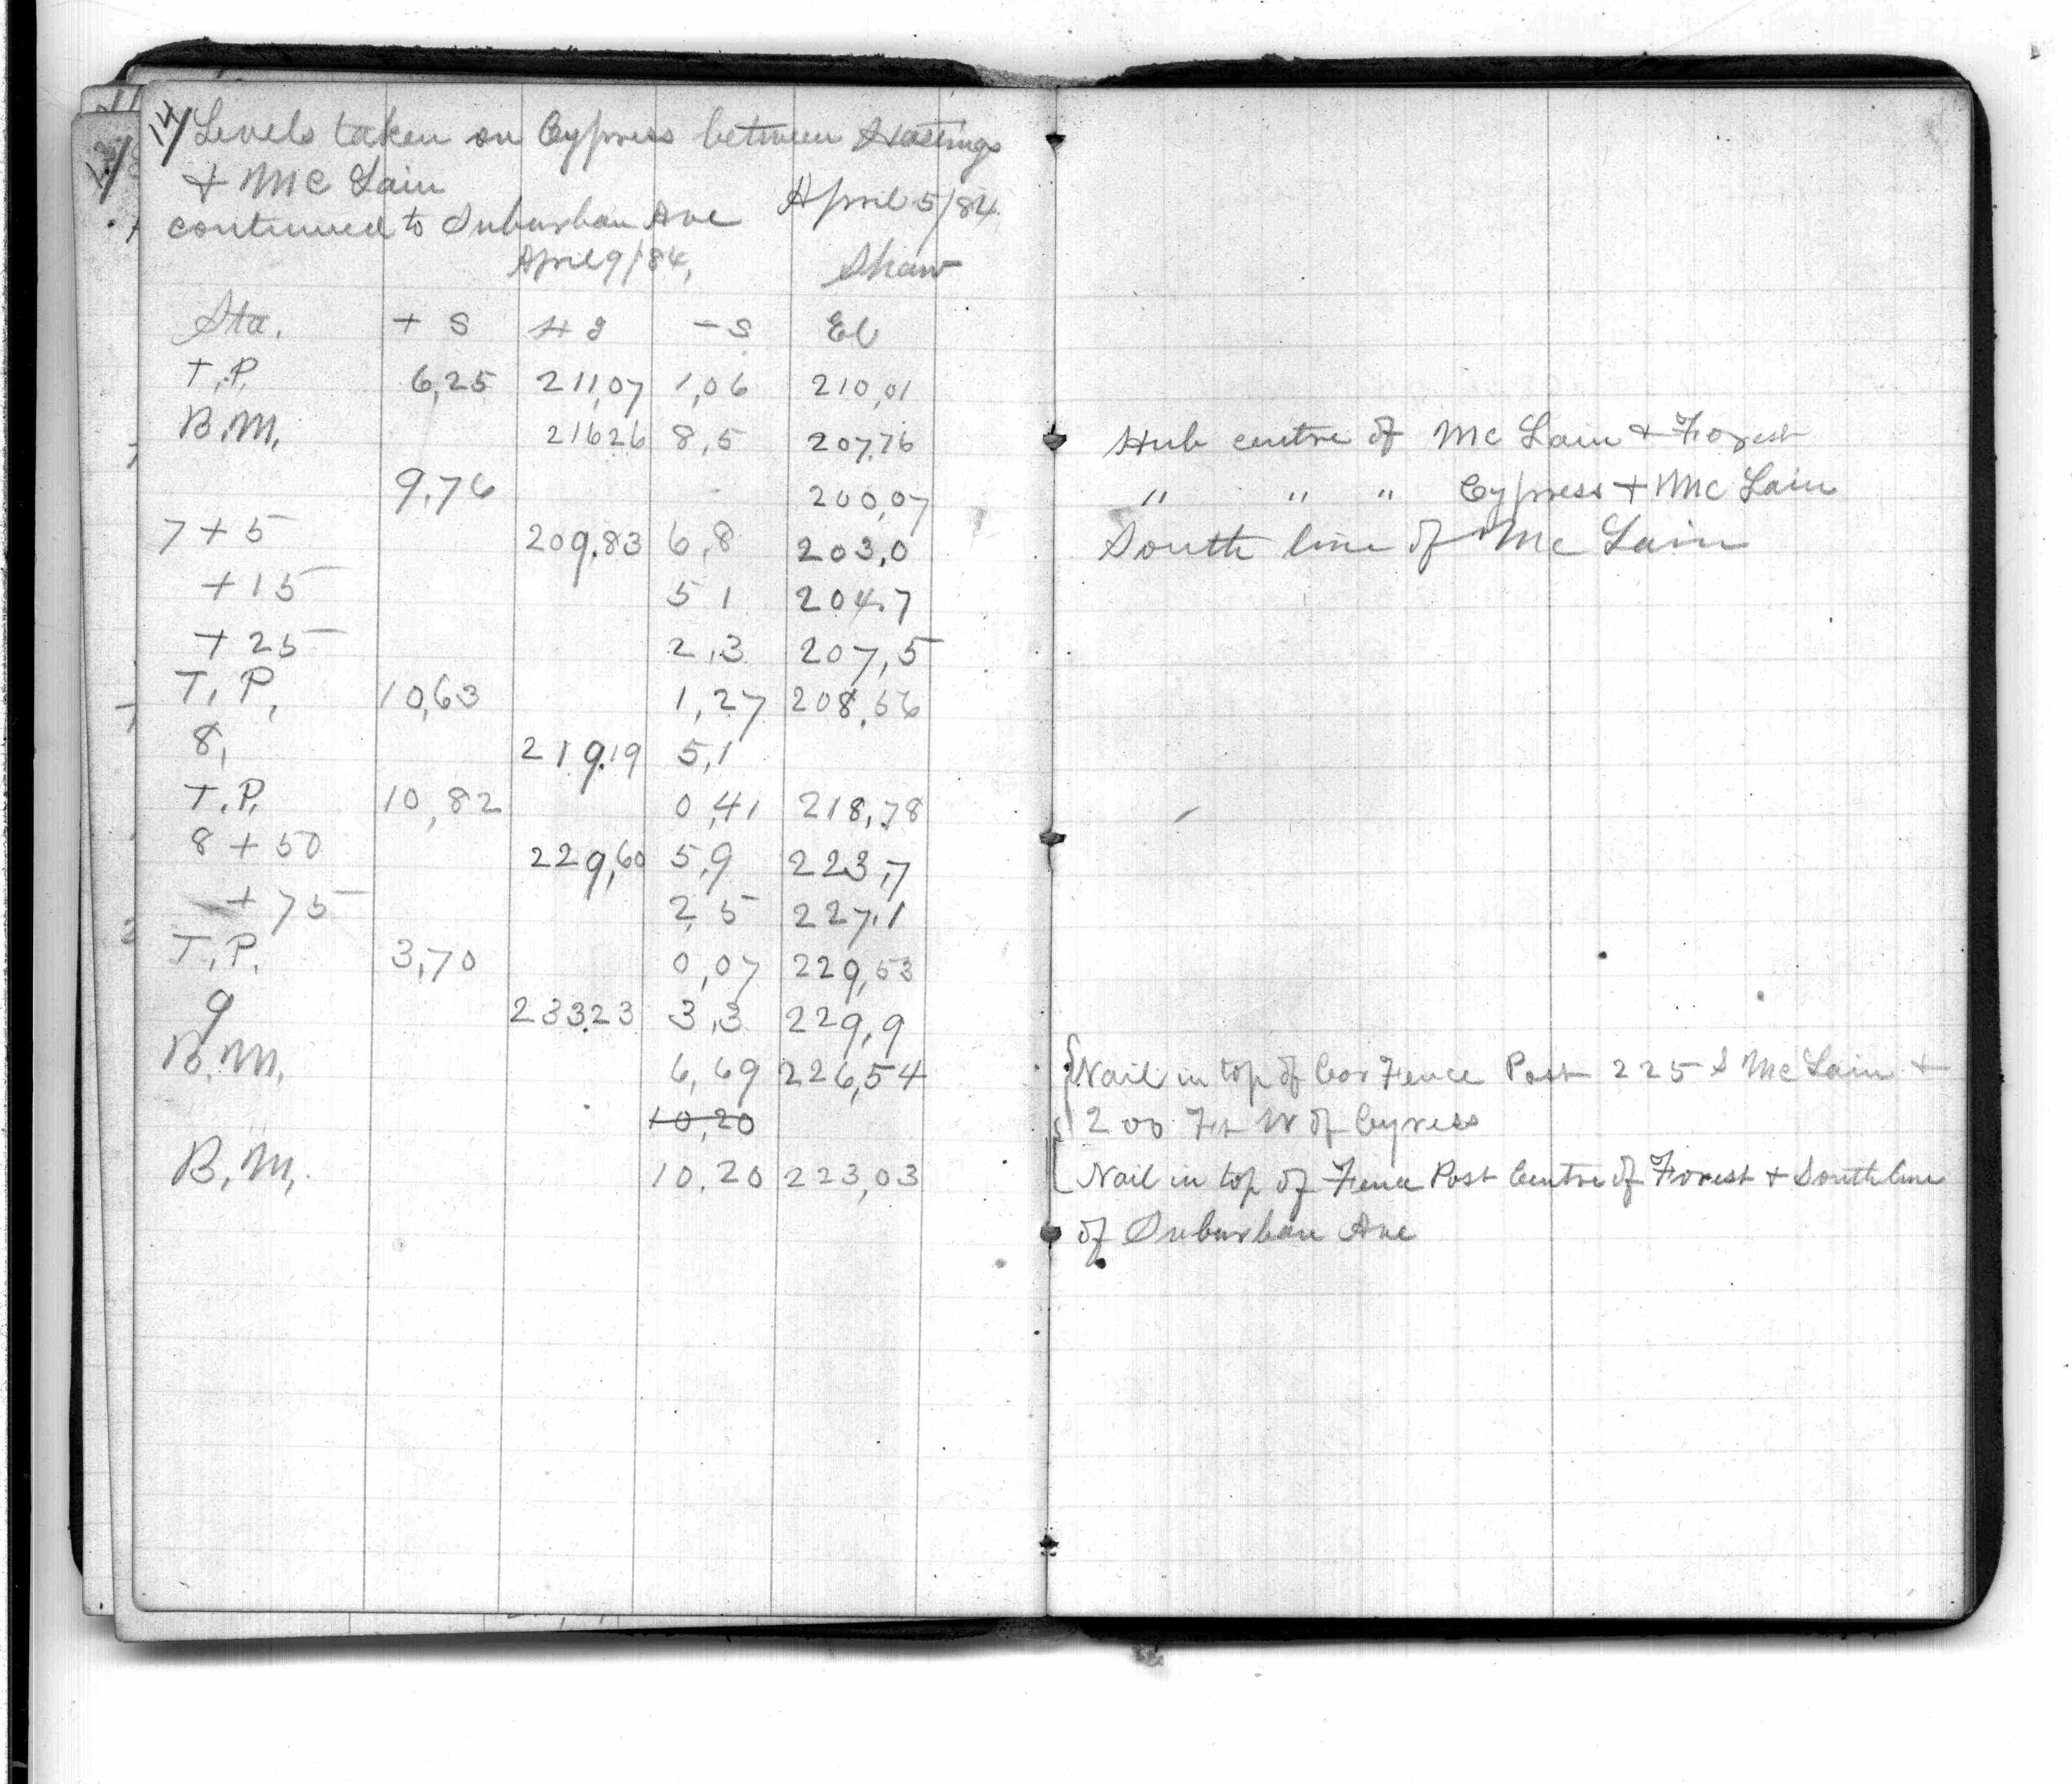 14/ Levels taken on Cypress between Hastings
+ Mc Lain
April 5/84
continued to Suburban Ave
April 9/84, Shaw
Sta. + S H I - S El
T.P. 6,25 211,07 1,06 210,01
B.M. 216 26 8,5 207.76
9,76 200,07
7 + 5 209.83 6,8 203,0
+ 15 5 1 204.7
+ 25 2,3 207,5
T, P, 10,63 1,27 208,56
8, 219.19 5,1
T.P. 10,82 0,41 218,78
8 + 50 229,60 5,9 223,7
+ 75 2,5 227.1
T,P. 3,70 0,07 229,53
9 233.23 3,3 229,9
B.M. 6,69 226,54
10,20
B,M, 10,20 223,03
Hub centre of Mc Lain + Forest
" " " Cypress + Mc Lain
South line of Mc Lain
Nail in top of Cor Fence Post 225 S Mc Lain +
200 Ft W of Cypress
Nail in top of Fence Post Centre of Forest + South line
of Suburban Ave